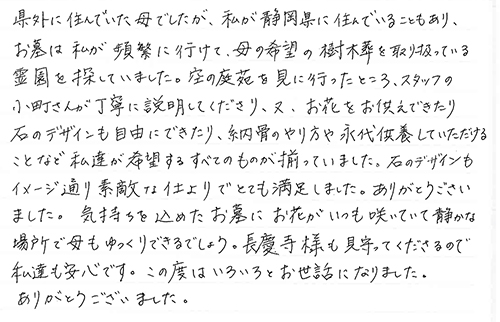 県外に住んでいた母でしたが、私が静岡県に住んでいることもあり、
お墓は私が頻繁に行けて、母の希望の樹木葬を取り扱っている
霊園を探していました。空の庭苑を見に行ったところ、スタッフの
小町さんが丁寧に説明してくださり、又、お花をお供えできたり
石のデザインも自由にできたり、納骨のやり方や永代供養していただける
ことなど私達が希望するすべてのものが揃っていました。石のデザインも
イメージ通り素敵な仕上りでとても満足しました。ありがとうござい
ました。気持ちを込めたお墓にお花がいつも咲いていて静かな
場所で母もゆっくりできるでしょう。長慶寺様も見守ってくださるので
私達も安心です。この度はいろいろとお世話になりました。
ありがとうございました。